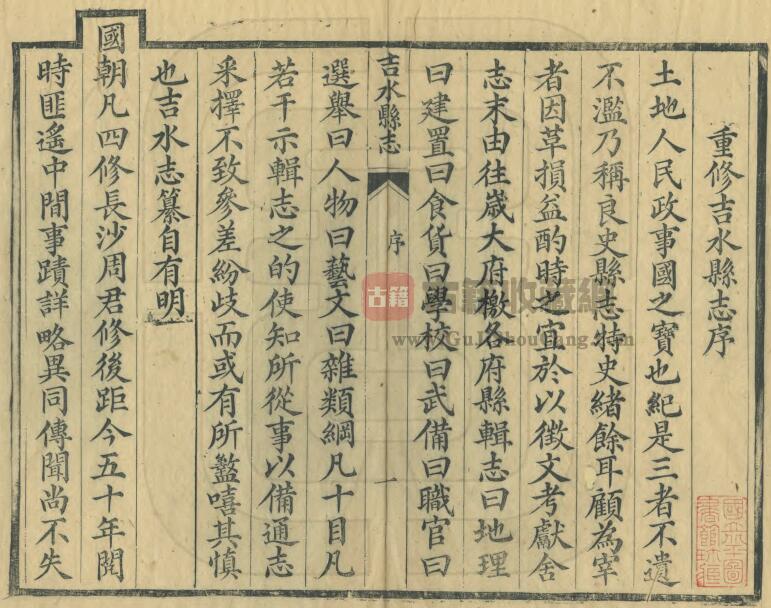 重修吉水縣志序
土地人民政事國之寶也紀是三者不遺
不濫乃稱良史縣志特史緒餘耳顧為宰
者因革損益酌時之宜於以徵文考獻舍
志末由往歲大府檄各府縣輯志曰地理
曰建置曰食貨曰學校曰武備曰職官曰
吉水縣志
序
一
選舉曰人物曰藝文曰雜類綱凡十目凡
若干示輯志之的使知所從事以備通志
采擇不致參差紛歧而或有所盭嘻其慎
也吉水志纂自有明
國朝凡四修長沙周君修後距今五十年閱
時匪遙中間事蹟詳略異同傳聞尚不失
古籍 古籍收藏網